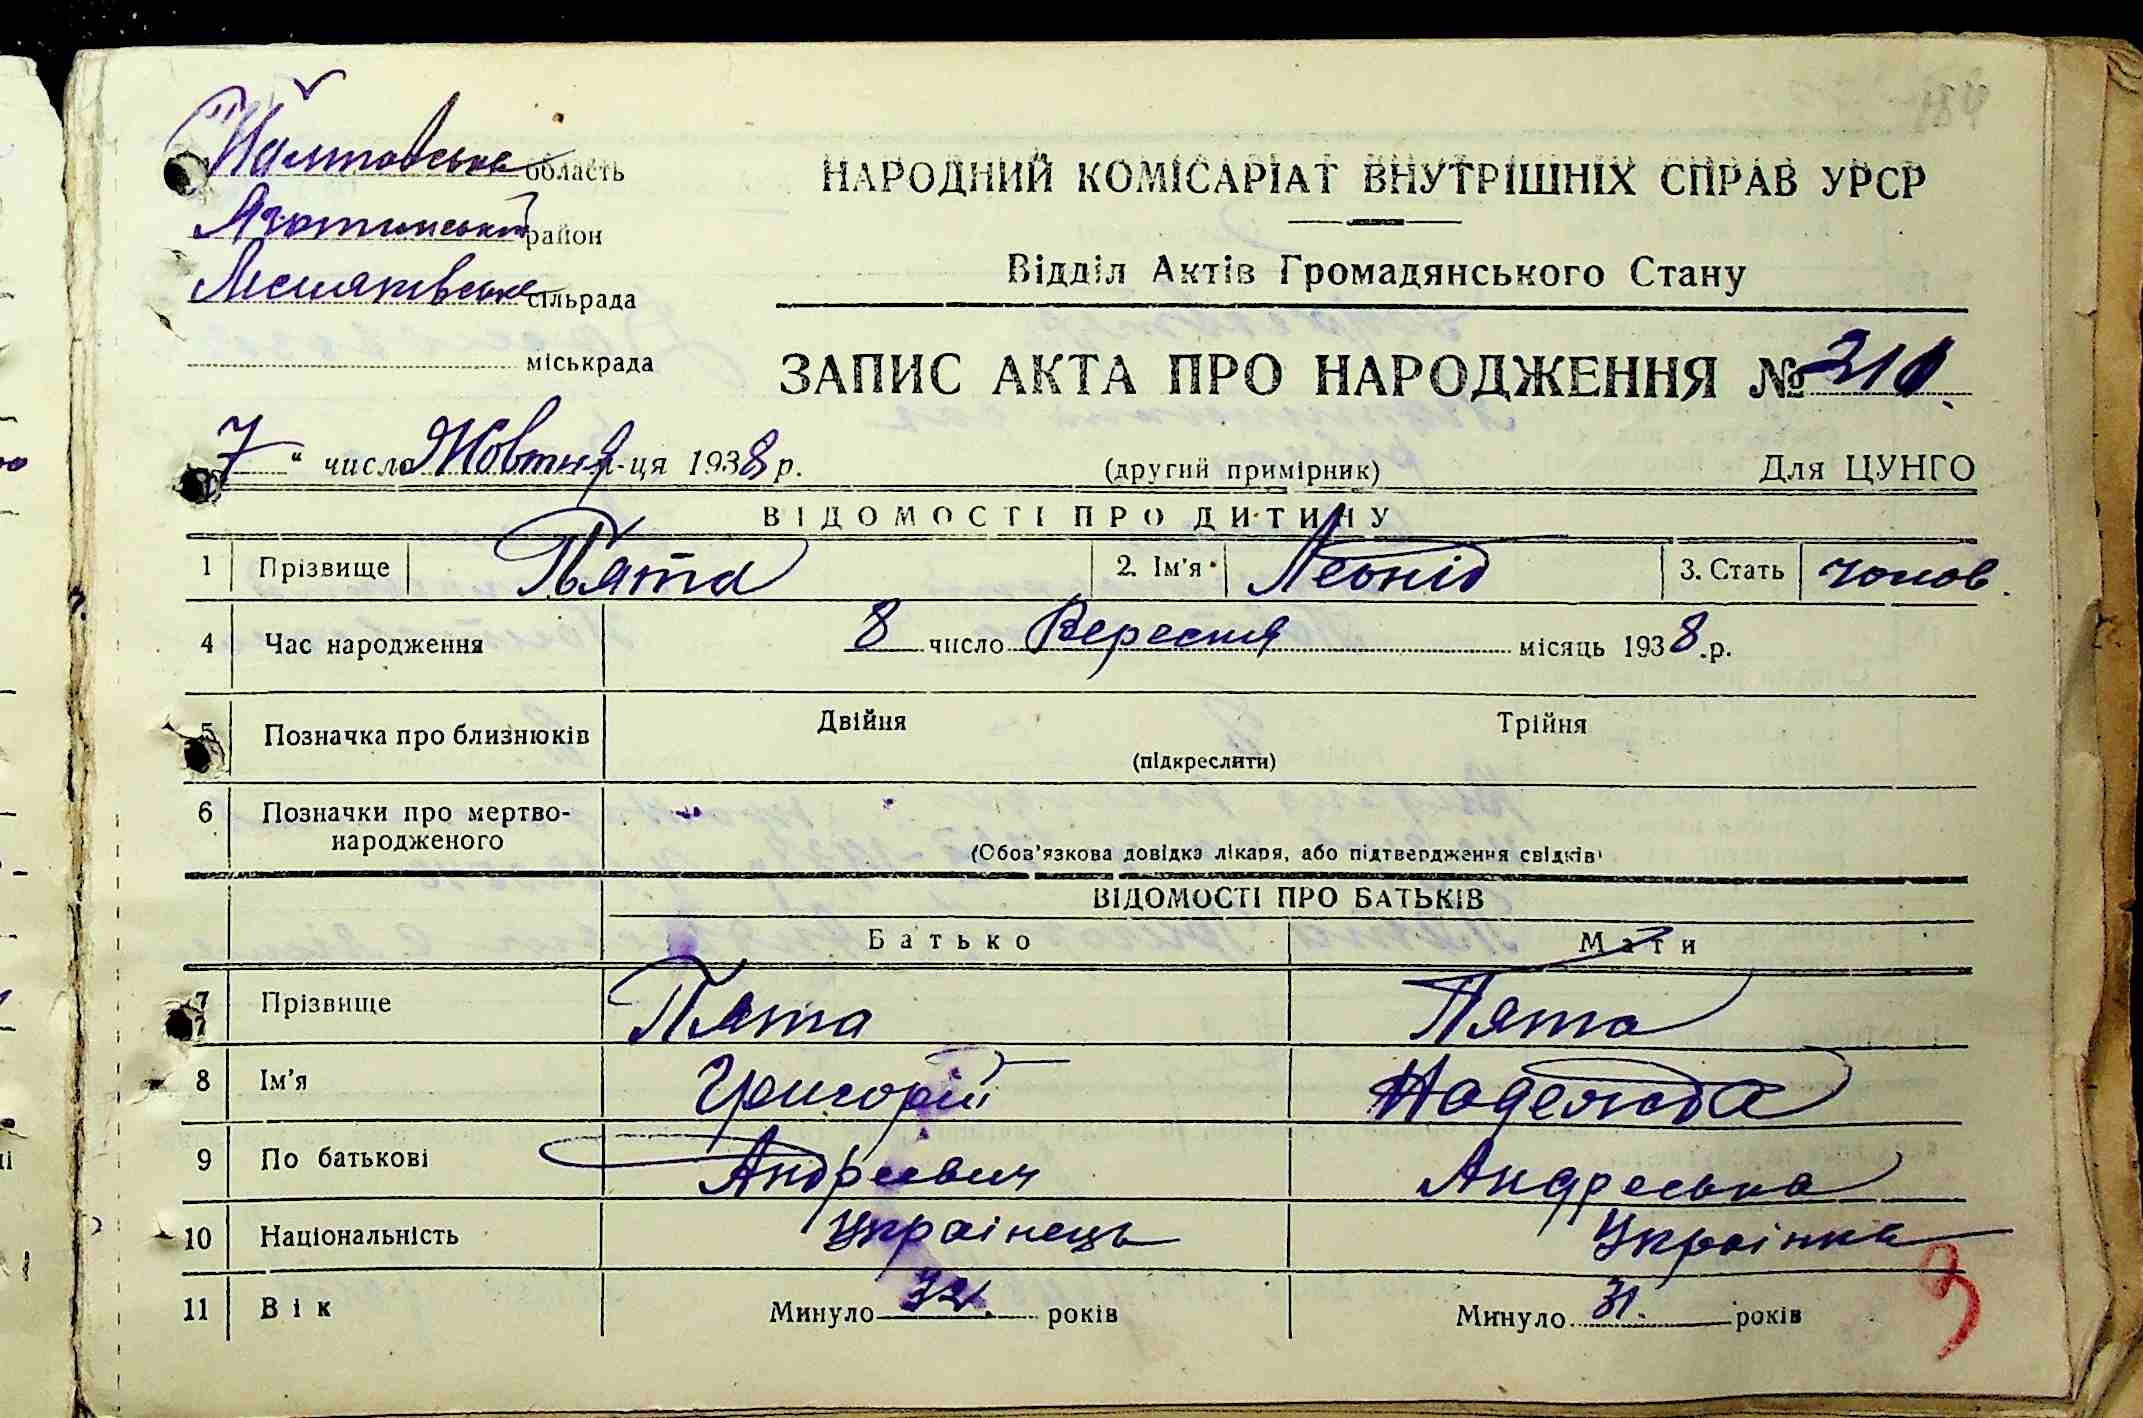 Полтовське область
Яготинський район
Лемляківське сільрада
міськрада
НАРОДНИЙ КОМІСАРІАТ ВНУТРІШНІХ СПРАВ УРСР
Відділ Актів Громадянського Стану
ЗАПИС АКТА ПРО НАРОДЖЕННЯ № 210.
7 " число Жовтня м-ця 1938 р.
(другий примірник)
Для ЦУНГО
ВІДОМОСТІ ПРО ДИТИНУ
1 Прізвище Пята 2. Ім'я Леонід 3. Стать чолов.
4 Час народження 8 число Вересня місяць 1938 .р.
5 Позначка про близнюків Двійня Трійня
(підкреслити)
6 Позначки про мертво-
народженого
(Обов'язкова довідка лікаря, або підтвердження свідків)
ВІДОМОСТІ ПРО БАТЬКІВ
Батько Мати
7 Прізвище Пята Пята
8 Ім'я Григорій Надежда
9 По батькові Андреевич Андреевна
10 Національність Українець Українка
11 Вік Минуло 32. років Минуло 31. років